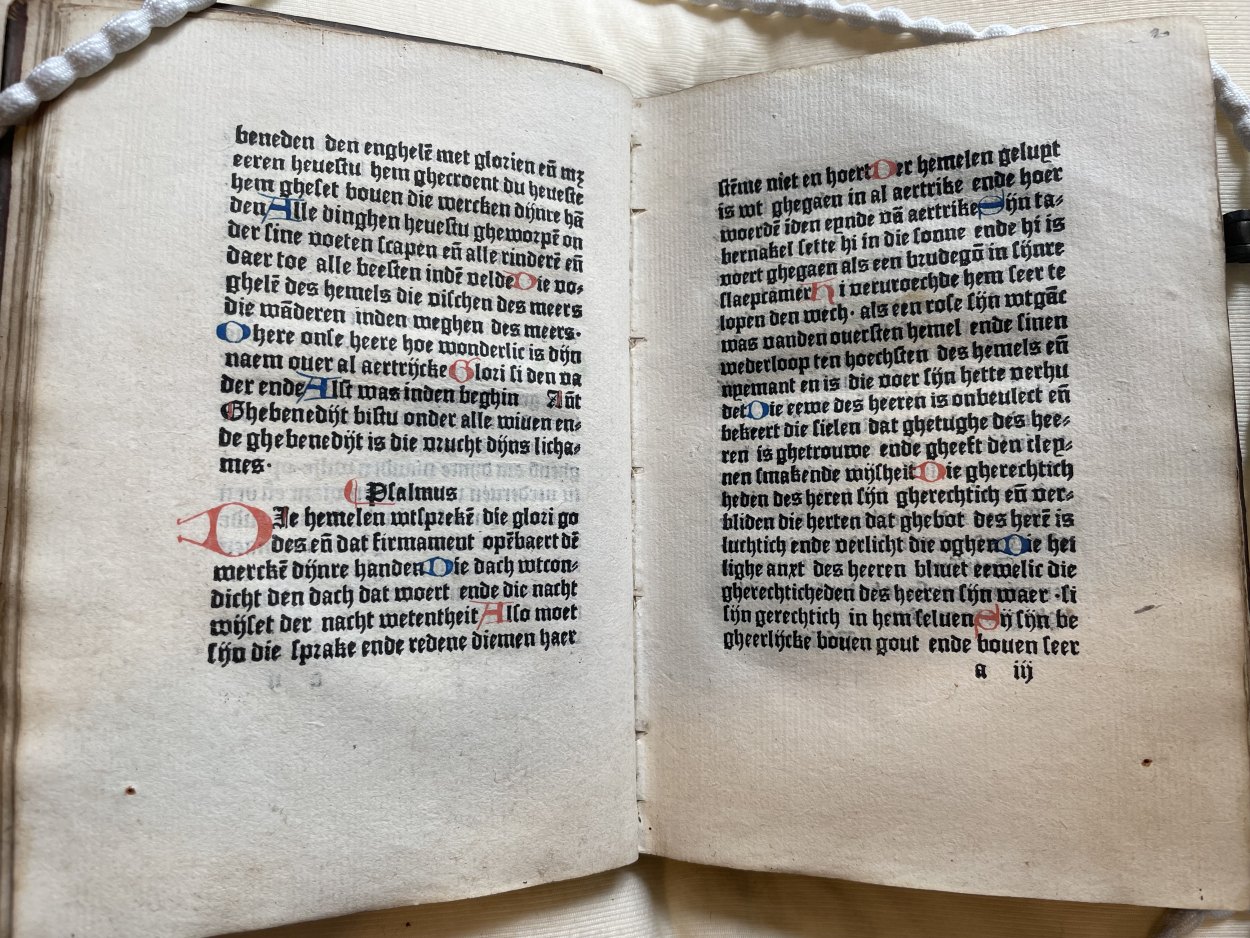 beneden den enghelē met glorien eñ mz
eeren heuestu hem ghecroent du heueste
hem gheset bouen die wercken dijnre hā
den Alle dinghen heuestu gheworpē on
der sine voeten scapen eñ alle rinderē eñ
daer toe alle beesten indē velde Die vo⸗
ghelē des hemels die visschen des meers
die wāderen inden weghen des meers·
O here onse heere hoe wonderlic is dijn
naem ouer al aertrijcke Glori si den va
der ende Alst was inden beghin Añt
Ghebenedijt bistu onder alle wiuen en⸗
de ghebenedijt is die vrucht dijns licha⸗
mes·
Psalmus
DIe hemelen wtsprekē die glori go
des eñ dat firmament opēbaert dē
werckē dijnre handen Die dach wtcon⸗
dicht den dach dat woert ende die nacht
wijset der nacht wetentheit Also moet
sijn die sprake ende redene diemen haer
20
stēme niet en hoert Der hemelen geluyt
is wt ghegaen in al aertrike ende hoer
woerdē iden eynde vā aertrike Sijn ta⸗
bernakel sette hi in die sonne ende hi is
voert ghegaen als een brudegō in sijnre
slaepcamer Hi veruroechde hem seer te
lopen den wech· als een rose sijn wtgāc
was vanden ouersten hemel ende sinen
wederloop ten hoechsten des hemels eñ
nyemant en is die voer sijn hette verhu
det Die eewe des heeren is onbeulect eñ
bekeert die sielen dat ghetughe des hee⸗
ren is ghetrouwe ende gheeft den cley⸗
nen smakende wijsheit Die gherechtich
heden des heren sijn gherechtich eñ ver⸗
bliden die herten dat ghebot des herē is
luchtich ende verlicht die oghen Die hei
lighe anxt des heeren bliuet eewelic die
gherechticheden des heeren sijn waer ·si
sijn gerechtich in hem seluen Sij sijn be
gheerlijcke bouen gout ende bouen seer
a iij